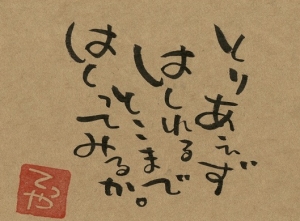 とりあえず
はしれる
とこまで
はしってみるか。
てつや